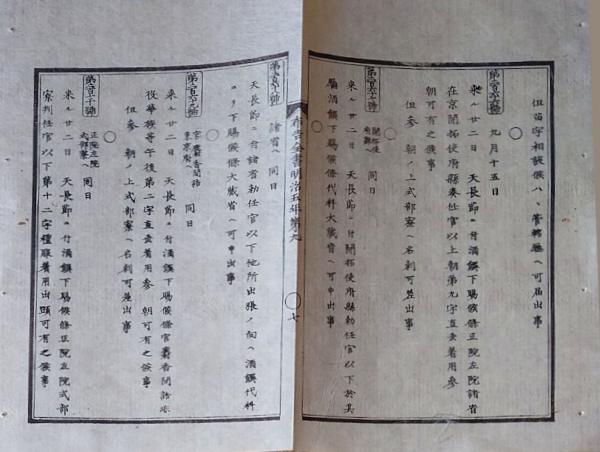 但苗字相談候ハヽ管轄廳ヘ可届出事
九月十五日
來ル廿二日天長節ニ付酒饌下賜候條正院左院諸省
在京開拓使府縣奏任官以上朝第九字直垂着用参
朝可有之候事
但参朝ノ上式部寮ヘ名刺可差出事
開拓使
府縣ヘ
同日
來ル廿二日天長節ニ付開拓使府縣勅任官以下於其
廳酒饌下賜候條代料大蔵省ヘ可申出事
布告全書明治五年第九
七
諸省ヘ同日
天長節ニ付諸省勅任官以下他所出張ノ向ヘ酒饌代料
ヨリ下賜候條大蔵省ヘ可申出事
官
東京府ヘ
同日
來ル廿二日天長節ニ付酒饌下賜候條官
役華族等午後第二字直垂着用参朝可有之候事
但参朝ノ上式部寮ヘ名刺可差出事
正院左院
式部寮ヘ
同日
來ル廿二日天長節ニ付酒饌下賜候條正院左院式部
寮判任官以下第十二字禮服着用出頭可有之候事